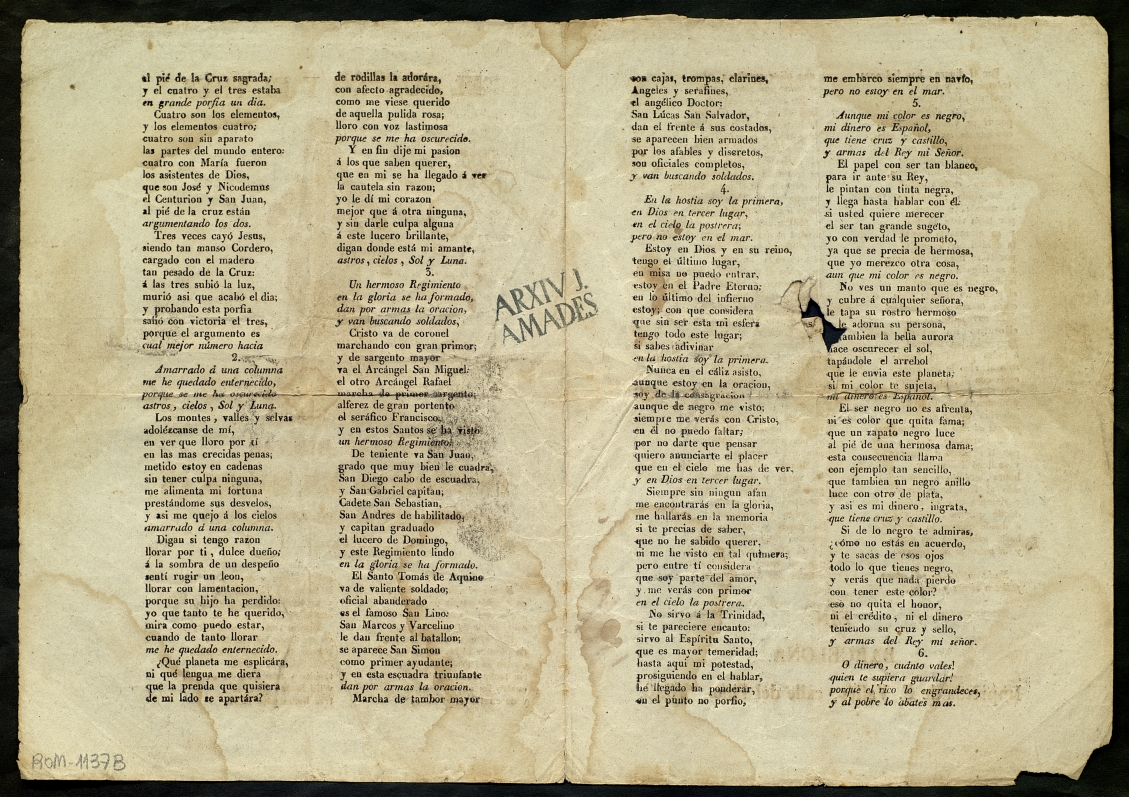 al pié de la Cruz sagrada;
y el cuatro y el tres estaba
en grande porfia un dia.
Cuatro son los elementos,
y los elementos cuatro;
cuatro son sin aparato
las partes del mundo entero:
cuatro con María fueron
los asistentes de Dios,
que son José y Nicodemus
el Centurion y San Juan,
al pié de la cruz están
argumentando los dos.
Tres veces cayó Jesus,
siendo tan manso Cordero,
cargado con el madero
tan pesado de la Cruz:
á las tres subió la luz,
murió asi que acabó el dia;
y probando esta porfia
salió con victoria el tres,
porque el argumento es
cual mejor número hacia
2.
Amarrado á una columna
me he quedado enternecido,
porque se me ha oscurecido
astros, cielos, Sol y Luna.
Los montes, valles y selvas
adolézcanse de mí,
en ver que lloro por tí
en las mas crecidas penas;
metido estoy en cadenas
sin tener culpa ninguna,
me alimenta mi fortuna
prestándome sus desvelos,
y asi me quejo á los cielos
amarrado á una columna.
Digan si tengo razon
llorar por ti, dulce dueño;
á la sombra de un despeño
sentí rugir un leon,
llorar con lamentacion,
porque su hijo ha perdido:
yo que tanto te he querido,
mira como puedo estar,
cuando de tanto llorar
me he quedado enternecido.
¿Qué planeta me esplicára,
ni qué lengua me diera
que la prenda que quisiera
de mi lado se apartára?
de rodillas la adorára,
con afecto agradecido,
como me viese querido
de aquella pulida rosa;
lloro con voz lastimosa
porque se me ha oscurecido.
Y en fin dije mi pasion
á los que saben querer,
que en mi se ha llegado á ver
la cautela sin razon;
yo le dí mi corazon
mejor que á otra ninguna,
y sin darle culpa alguna
á este lucero brillante,
digan donde está mi amante,
astros, cielos, Sol y Luna.
3.
Un hermoso Regimiento
en la gloria se ha formado,
dan por armas la oracion,
y van buscando soldados,
Cristo va de coronel
marchando con gran primor;
y de sargento mayor
va el Arcángel San Miguel:
el otro Arcángel Rafael
marcha de primer sargento;
alferez de gran portento
el seráfico Francisco,
y en estos Santos se ha visto
un hermoso Regimiento.
De teniente va San Juan,
grado que muy bien le cuadra,
San Diego cabo de escuadra,
y San Gabriel capitan,
Cadete San Sebastian,
San Andres de habilitado,
y capitan graduado
el lucero de Domingo,
y este Regimiento lindo
en la gloria se ha formado.
El Santo Tomás de Aquino
va de valiente soldado;
oficial abanderado
es el famoso San Lino:
San Marcos y Varcelino
le dan frente al batallon;
se aparece San Simon
como primer ayudante;
y en esta escuadra triunfante
dan por armas la oracion.
Marcha de tambor mayor
son cajas, trompas, clarines,
Angeles y serafines,
el angélico Doctor:
San Lúcas San Salvador,
dan el frente á sus costados,
se aparecen bien armados
por los afables y discretos,
son oficiales completos,
y van buscando soldados.
4.
En la hostia soy la primera,
en Dios en tercer lugar,
en el cielo la postrera;
pero no estoy en el mar.
Estoy en Dios y en su reino,
tengo el último lugar,
en misa no puedo entrar,
estoy en el Padre Eterno;
en lo último del infierno
estoy; con que considera
que sin ser esta mi esfera
tengo todo este lugar;
si sabes adivinar
en la hostia soy la primera.
Nunca en el cáliz asisto,
aunque estoy en la oracion,
soy de la consagracion
aunque de negro me visto;
siempre me verás con Cristo,
en él no puedo faltar;
por no darte que pensar
quiero anunciarte el placer
que en el cielo me has de ver,
y en Dios en tercer lugar.
Siempre sin ningun afan
me encontrarás en la gloria,
me hallarás en la memoria
si te precias de saber,
que no he sabido querer,
ni me he visto en tal quimera;
pero entre tí considera
que soy parte del amor,
y me verás con primor
en el cielo la postrera.
No sirvo á la Trinidad,
si te pareciere encanto:
sirvo al Espíritu Santo,
que es mayor temeridad;
hasta aqui mi potestad,
prosiguiendo en el hablar,
he llegado ha ponderar,
en el punto no porfio,
me embarco siempre en navío,
pero no estoy en el mar.
5.
Aunque mi color es negro,
mi dinero es Español,
que tiene cruz y castillo,
y armas del Rey mi Señor.
El papel con ser tan blanco,
para ir ante su Rey,
le pintan con tinta negra,
y llega hasta hablar con él:
si usted quiere merecer
el ser tan grande sugeto,
yo con verdad le prometo,
ya que se precia de hermosa,
que yo merezco otra cosa,
aun que mi color es negro.
No ves un manto que es negro,
y cubre á cualquier señora,
le tapa su rostro hermoso
le adorna su persona,
tambien la bella aurora
hace oscurecer el sol,
tapándole el arrebol
que le envia este planeta;
si mi color te sujeta,
mi dinero es Español.
El ser negro no es afrenta,
ni es color que quita fama;
que un zapato negro luce
al pié de una hermosa dama;
esta consecuencia llama
con ejemplo tan sencillo,
que tambien un negro anillo
luce con otro de plata,
y asi es mi dinero, ingrata,
que tiene cruz y castillo.
Si de lo negro te admiras,
¿cómo no estás en acuerdo,
y te sacas de esos ojos
todo lo que tienes negro,
y verás que nada pierdo
con tener este color?
eso no quita el honor,
ni el crédito, ni el dinero
teniendo su cruz y sello,
y armas del Rey mi señor.
6.
O dinero, cuánto vales!
quien te supiera guardar!
porque el rico lo engrandeces,
y al pobre lo abates mas.
ARXIV J.
AMADES
ROM-1137B